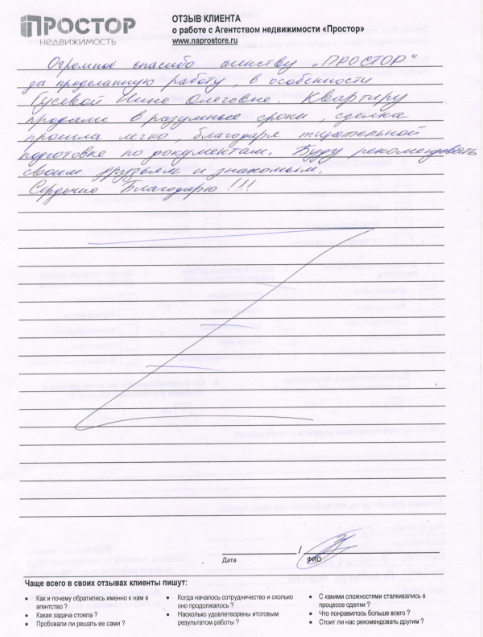 ПРОСТОР
НЕДВИЖИМОСТЬ
ОТЗЫВ КЛИЕНТА
о работе с Агентством недвижимости «Простор»
www.naprostore.ru
Огромное спасибо агенству „ПРОСТОР"
за проделанную работу, в особенности
Гусевой Инне Олеговне. Квартиру
продали в разумные сроки, сделка
прошла легко, благодаря тщательной
подготовке по документам. Буду рекомендовать
своим друзьям и знакомым.
Сердечно Благодарю !!!
Дата / ФИО
Чаще всего в своих отзывах клиенты пишут:
• Как и почему обратились именно к нам в агентство ?
• Какая задача стояла ?
• Пробовали ли решать ее сами ?
• Когда началось сотрудничество и сколько оно продолжалось ?
• Насколько удовлетворены итоговым результатом работы ?
• С какими сложностями сталкивались в процессе сделки ?
• Что понравилось больше всего ?
• Стоит ли нас рекомендовать другим ?